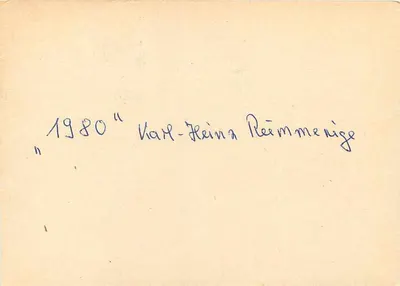 „1980“ Karl-Heinz Reimmenige